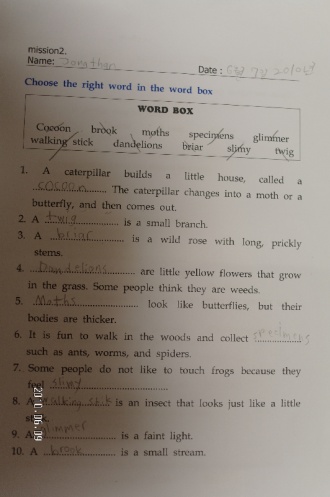 mission2.
Name: Jonathan
Date : 6월 7일 2010년
Choose the right word in the word box
WORD BOX
Cocoon brook moths specimens glimmer
walking stick dandelions briar slimy twig
1. A caterpillar builds a little house, called a
cocoon. The caterpillar changes into a moth or a
butterfly, and then comes out.
2. A twig is a small branch.
3. A briar is a wild rose with long, prickly
stems.
4. Dandelions are little yellow flowers that grow
in the grass. Some people think they are weeds.
5. Moths look like butterflies, but their
bodies are thicker.
6. It is fun to walk in the woods and collect specimens
such as ants, worms, and spiders.
7. Some people do not like to touch frogs because they
feel slimy
8. A walking stick is an insect that looks just like a little
stick.
9. A glimmer is a faint light.
10. A brook is a small stream.
2010.06.09